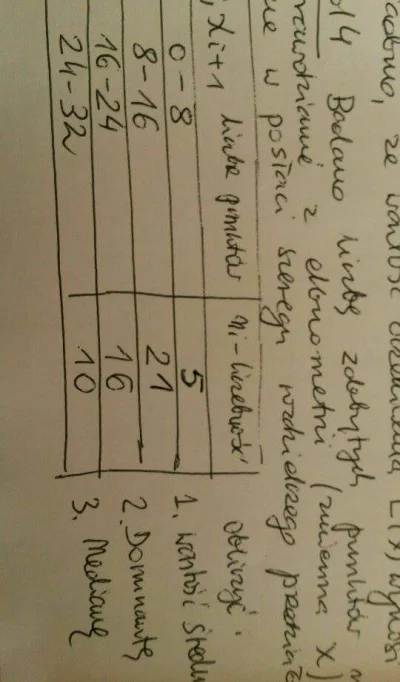 że wartość oczekiwana E(X) wynosi
14 Badano liczbę zdobytych punktów
z ekonometrii (zmienna X)
w postaci szeregu przedział
xi+1 liczba punktów ni-liczebność
0-8 5
8-16 21
16-24 16
24-32 10
obliczyć:
1. wartość średn
2. Dominantę
3. Medianę